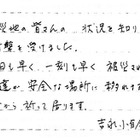 災地の皆さんの…状況を知り
撃を受けました。
日も早く、一刻も早く被災さ
達が安全な場所に
から祈って居ります。
吉永小百合